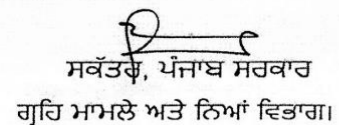 ਸਕੱਤਰ, ਪੰਜਾਬ ਸਰਕਾਰ
ਗ੍ਰਹਿ ਮਾਮਲੇ ਅਤੇ ਨਿਆਂ ਵਿਭਾਗ।